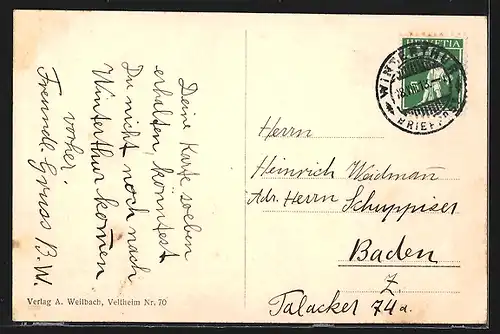 Deine Karte soeben
erhalten, könntest
Du nicht noch nach
Winterthur komen
vorher.
Freundl. Gruss B.W.
HELVETIA
WINTERTHUR
BRIEF
Herrn
Heinrich Weidmann
Adr. Herrn Schuppisser
Baden
Z.
Talacker 74a.
Verlag A. Weilbach, Veltheim Nr. 70